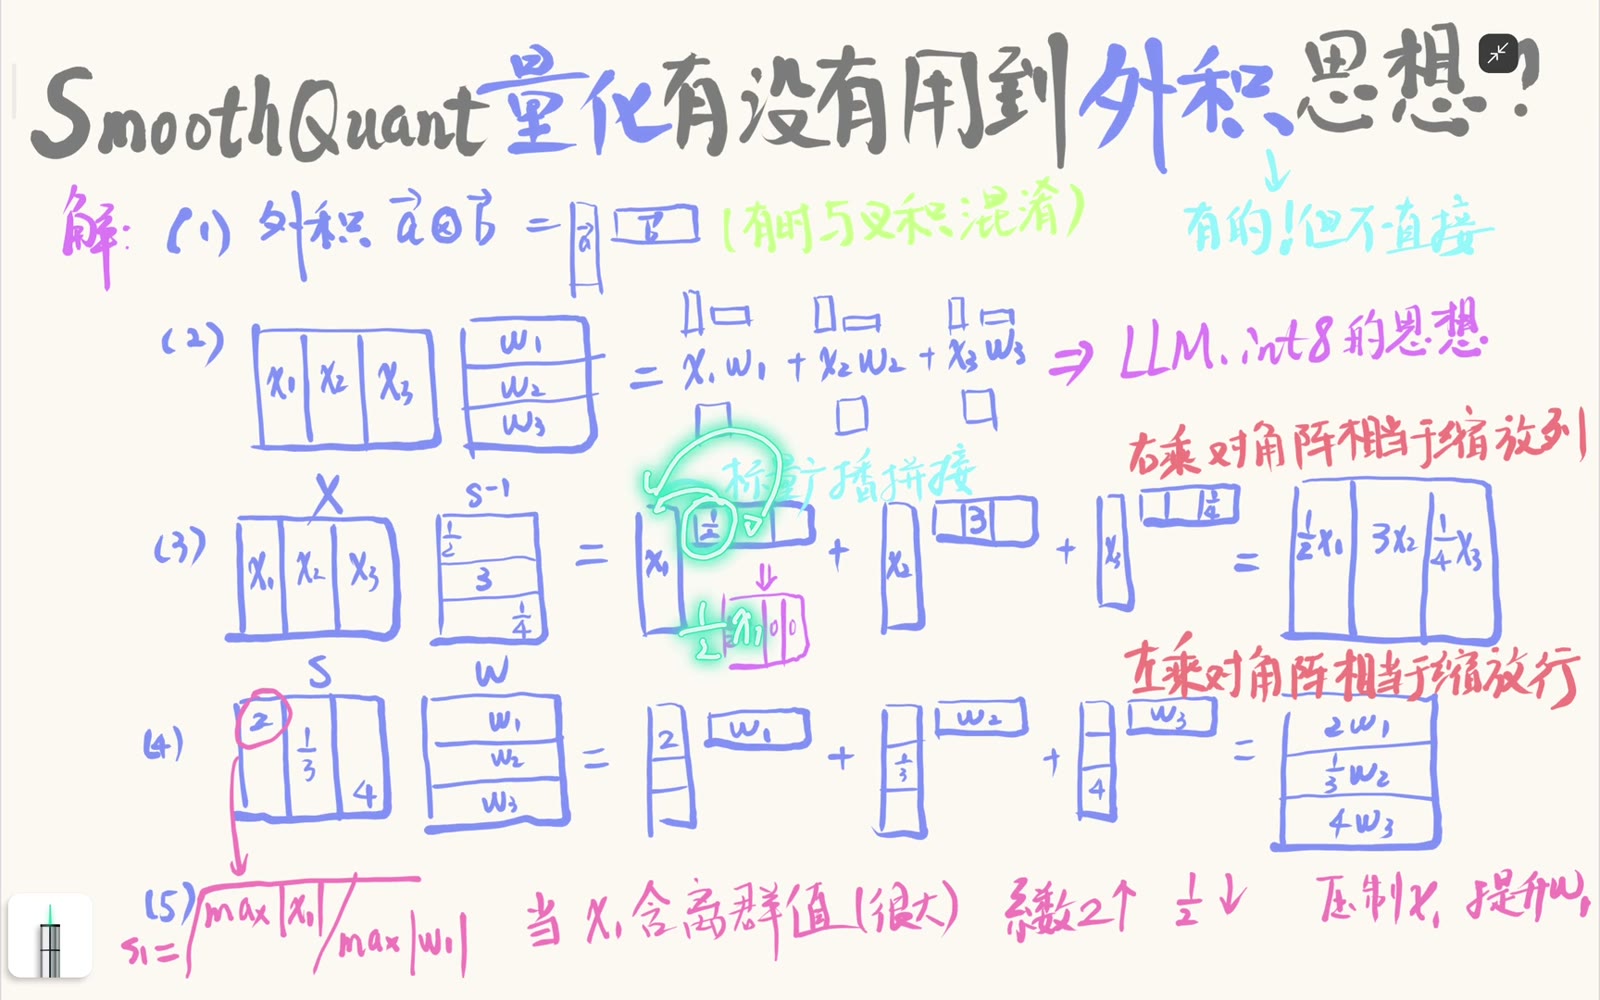 SmoothQuant量化有没有用到外积思想?
有的!但不直接
解: (1) 外积 a⊗b = a b (有时与叉积混淆)
(2) x₁ x₂ x₃ w₁ w₂ w₃ = x₁w₁ + x₂w₂ + x₃w₃ ⇒ LLM.int8的思想
右乘对角阵相当于缩放列
标量广播拼接
X S⁻¹
(3) x₁ x₂ x₃ 1/2 3 1/4 = x₁ 1/2 + x₂ 3 + x₃ 1/4 = 1/2x₁ 3x₂ 1/4x₃
1/2x₁ 0 0
左乘对角阵相当于缩放行
S W
(4) 2 1/3 4 w₁ w₂ w₃ = 2 w₁ + 1/3 w₂ + 4 w₃ = 2w₁ 1/3w₂ 4w₃
(5) s₁ = √max|x₁|/max|w₁| 当x₁含离群值(很大) 系数2↑ 1/2↓ 压制x₁ 提升w₁